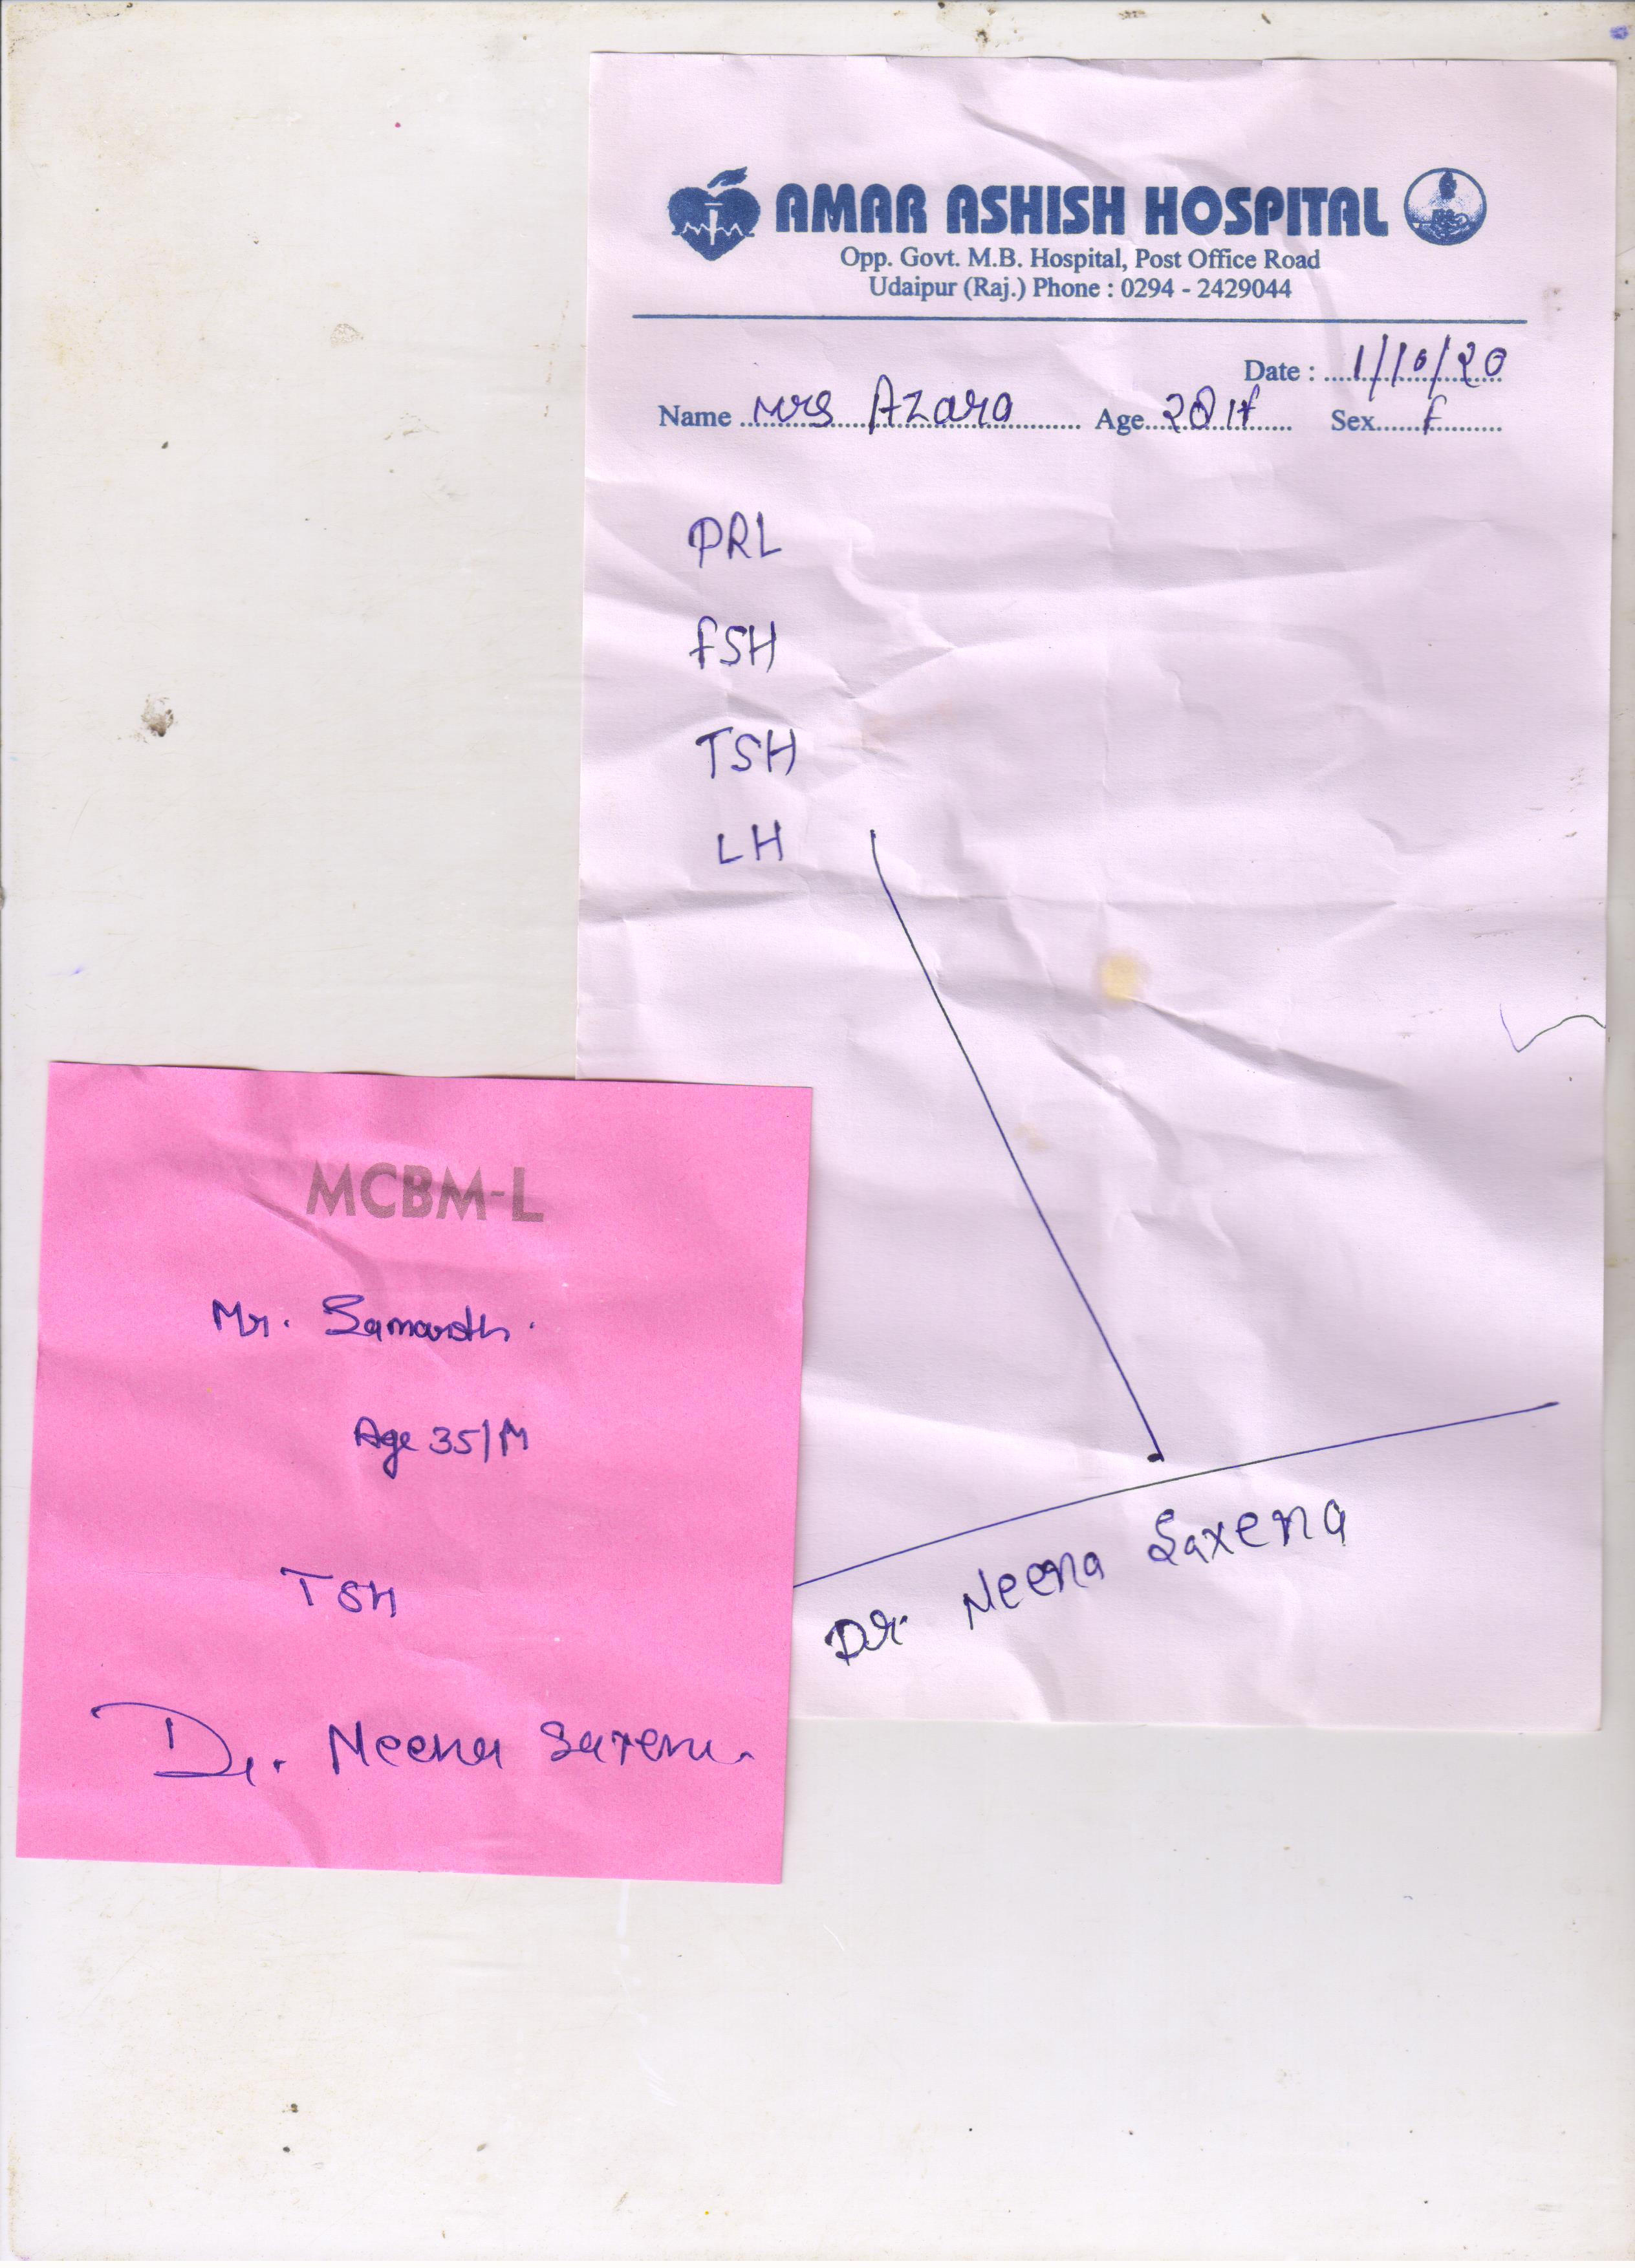 AMAR ASHISH HOSPITAL
Opp. Govt. M.B. Hospital, Post Office Road
Udaipur (Raj.) Phone : 0294 - 2429044
Date : 1/10/20
Name Mrs Azara Age 28 Sex F
PRL
FSH
TSH
LH
Dr. Neena Saxena
MCBM-L
Mr. Samarth.
Age 35/M
TSH
Dr. Neena Saxena